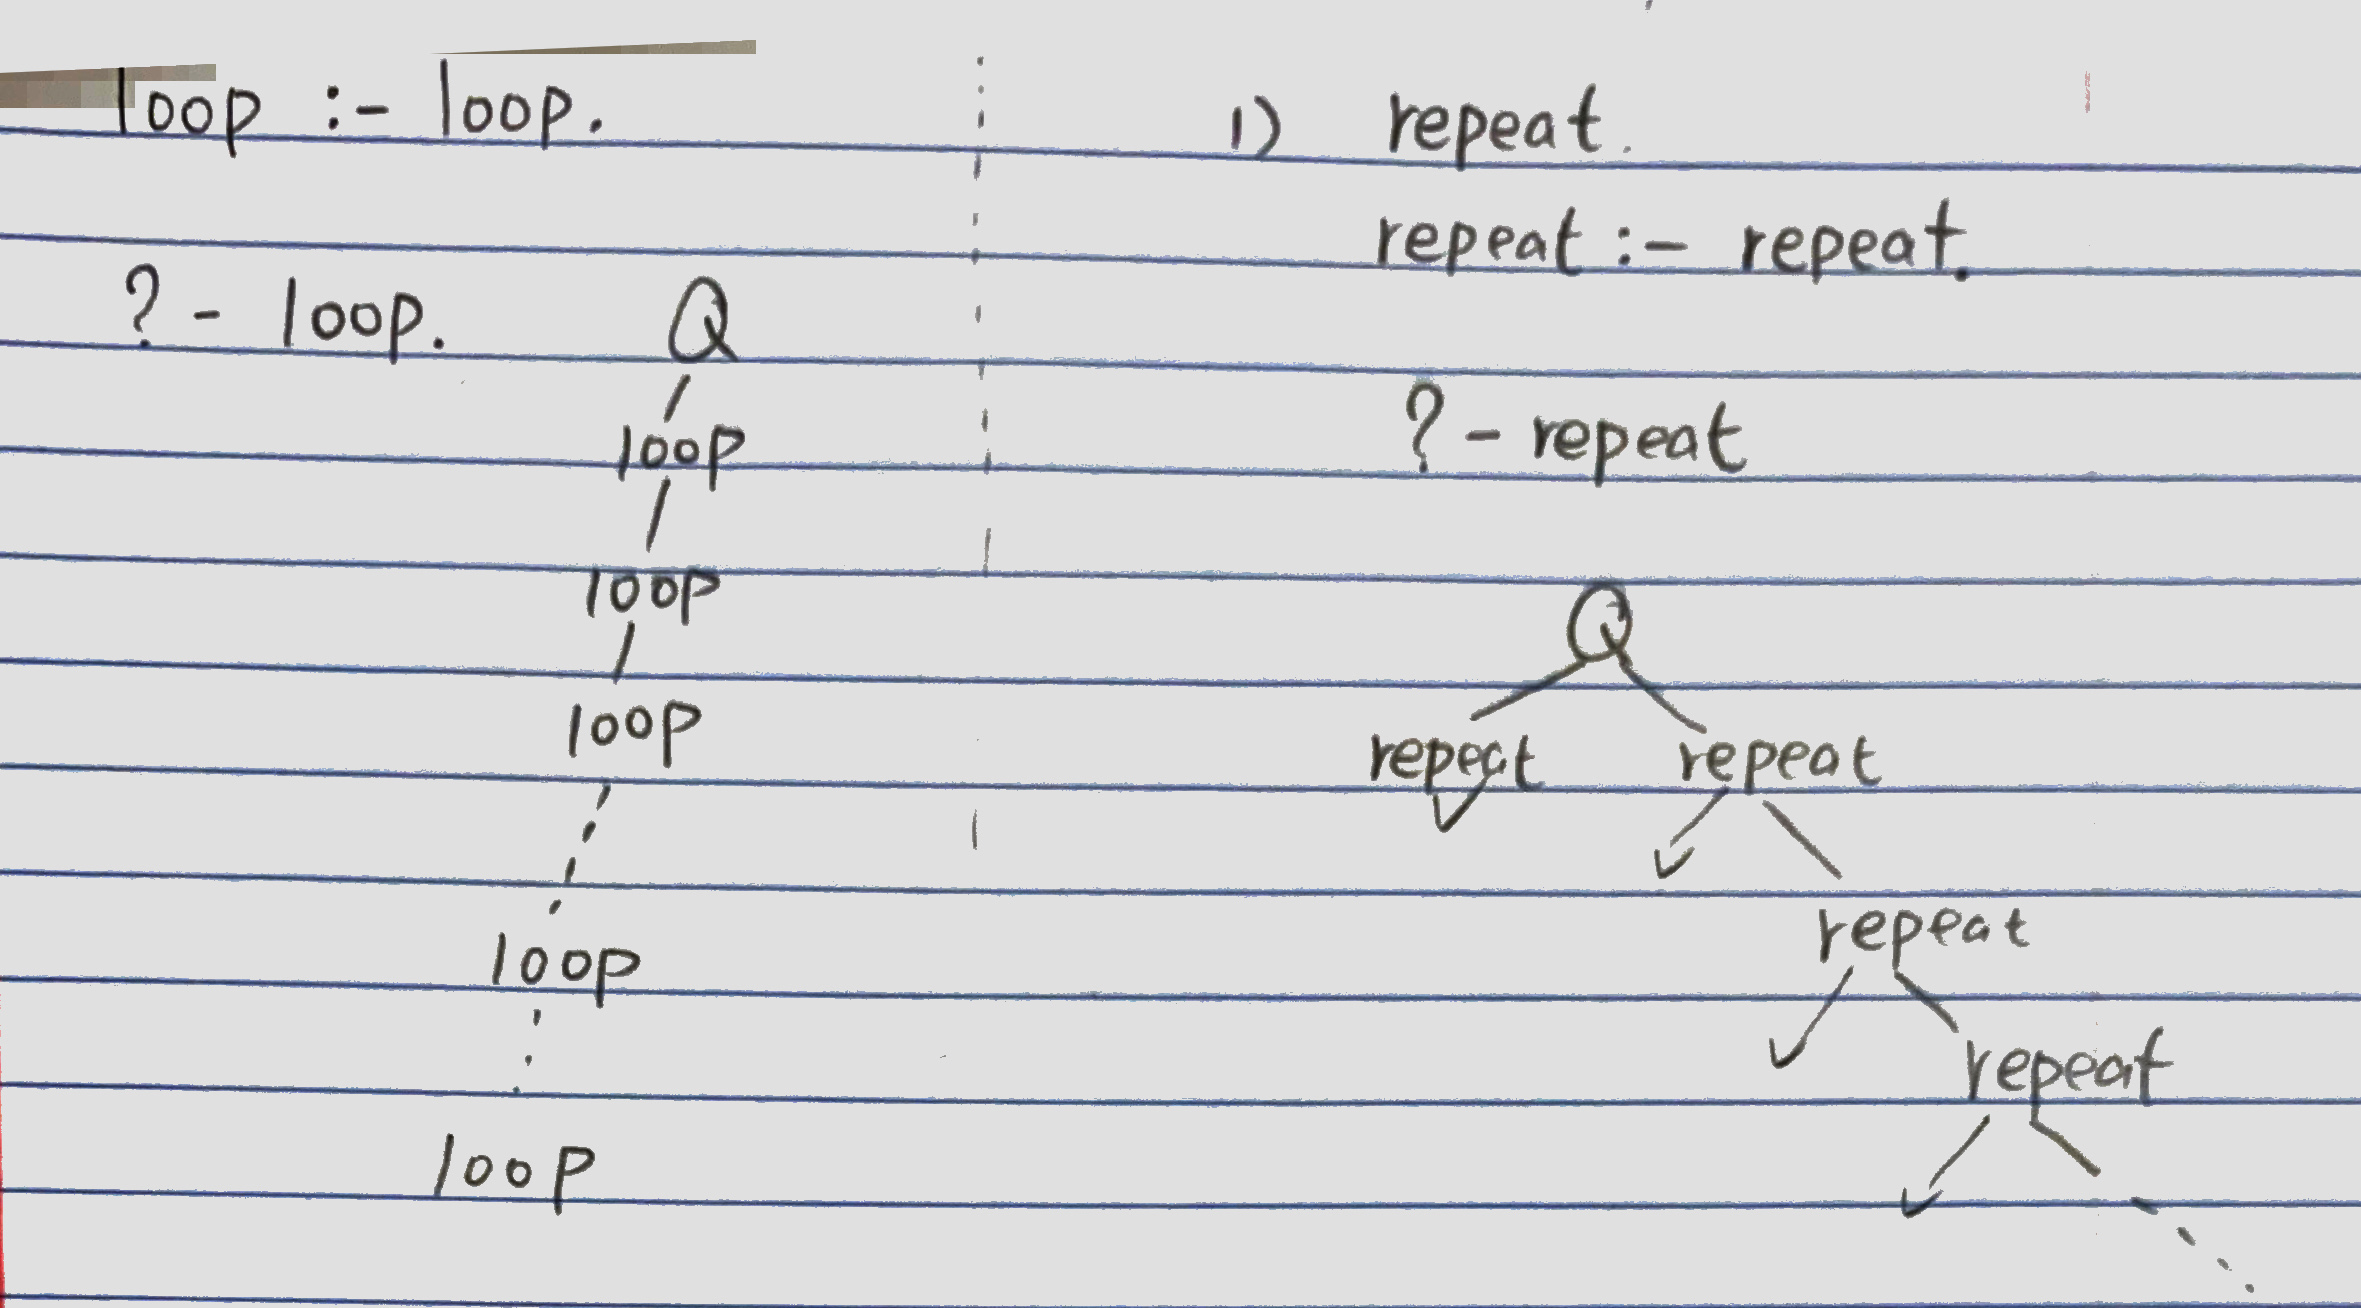 loop :- loop.
?- loop. Q
loop
loop
loop
loop
loop
1) repeat.
repeat :- repeat.
?- repeat
Q
repeat repeat
repeat
repeat